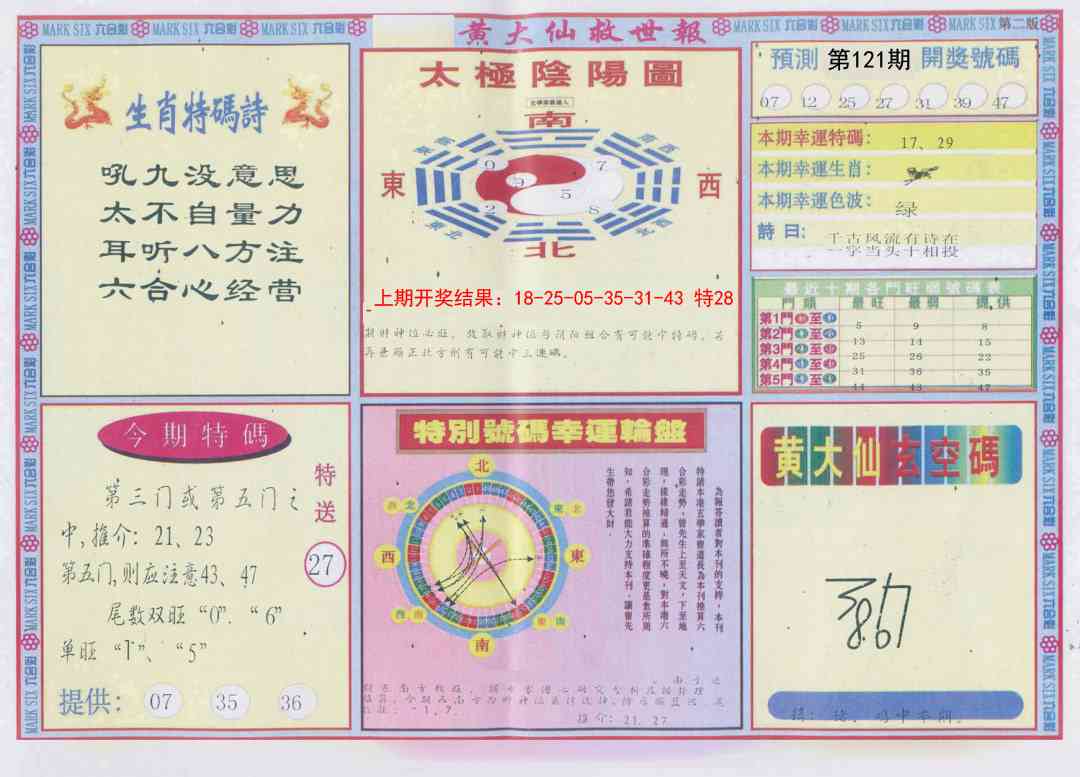 MARK SIX 六合彩 MARK SIX 六合彩 MARK SIX 六合彩
黄大仙救世報
MARK SIX 六合彩 MARK SIX 六合彩 MARK SIX 第二版
生肖特碼詩
吼九没意思
太不自量力
耳听八方注
六合心经营
太極陰陽圖
南
東南
南西
東
西
0
7
9
5
2
8
東北
西北
北
上期开奖结果：18-25-05-35-31-43 特28
預測 第121期 開獎號碼
07 12 25 27 31 39 47
本期幸運特碼： 17、29
本期幸運生肖：
本期幸運色波： 绿
詩曰： 千古风流有诗在
一字当头十相投
最近十期各門旺弱號碼表
門類 最旺 最弱 提供
第1門 至 5 9 8
第2門 至 13 14 15
第3門 至 25 26 23
第4門 至 31 36 35
第5門 至 44 43 47
今期特碼
第三门或第五门之
中,推介：21、23
第五门,则应注意43、47
尾数双旺“0”.“6”
单旺“1”、“5”
特送
27
提供： 07 35 36
特別號碼幸運輪盤
北
西北
東北
西
東
西南
東南
南
為報答讀者對本刊的支持，本刊
特請本港玄學家曾道長為本刊推算六
合彩走勢，曾先生上至天文，下至地
理，樣樣精通，無所不曉，對本港六
合彩走勢推算的準確程度更是衆所周
知，希請君能大力支持本刊，讓曾先
生帶您發大財．
推介：21. 27
黄大仙玄空碼